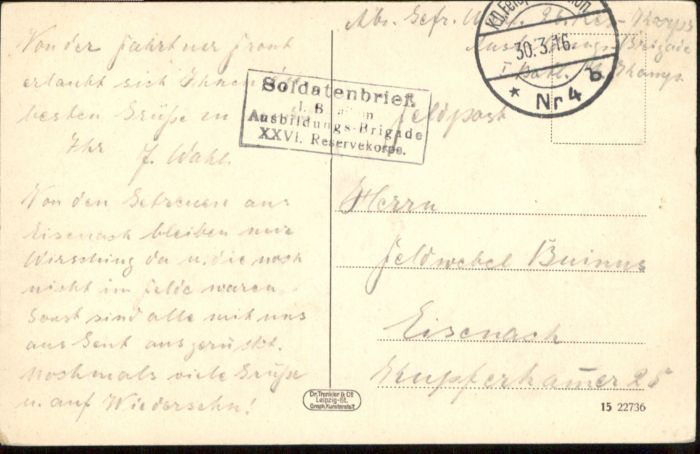 Von der Fahrt zur Front
erlaubt sich Ihnen die
besten Grüße zu
Ihr J. Wahl.
Von den Getreuen aus
Eisenach bleiben nur
Wirsching da u. die noch
nicht im Felde waren.
Sonst sind alle mit uns
aus Gent ausgerückt.
Nochmals viele Grüße
u. auf Wiedersehn!
Soldatenbrief
I. B
Ausbildungs-Brigade
XXVI. Reservekorps.
Abs. Gefr. Wahl. 26. Res.-Korps
Ausbildungs-Brigade
I. Batl. 4. Komp.
30.3.16.
* Nr 4 b
Feldpost
Herrn
Feldwebel Buinus
Eisenach
Kupferhammer 25
Dr. Trenkler & Co
Leipzig-St.
Graph. Kunstanstalt
15 22736